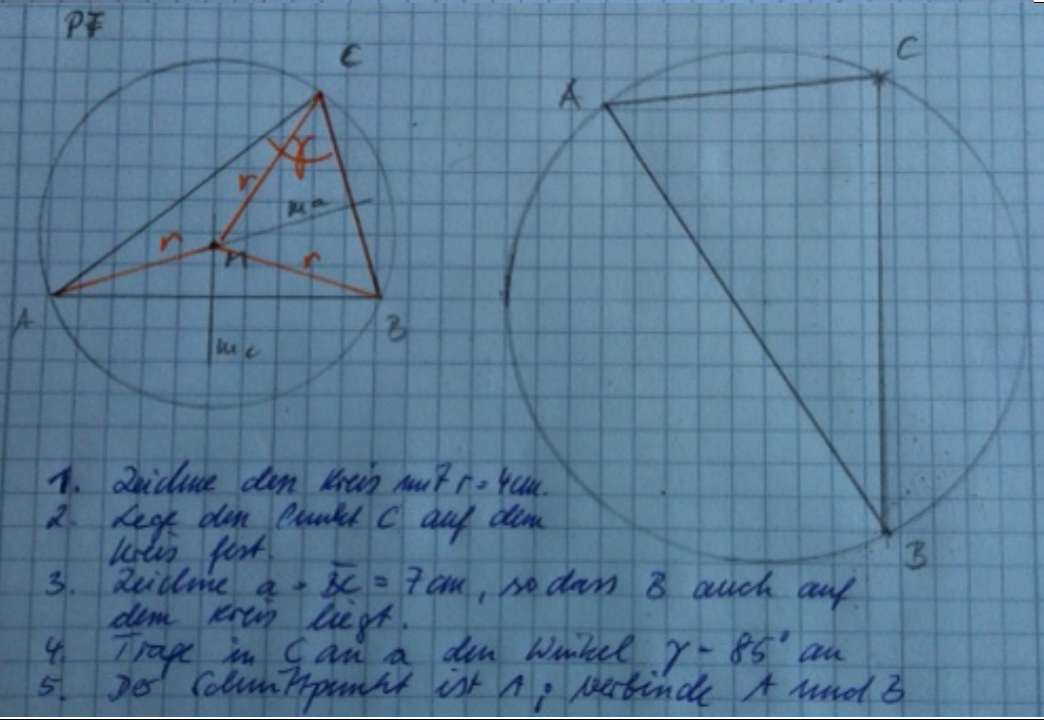 PF
C
γ
r
ma
r
r
M
A
B
mc
A
C
B
1. Zeichne den Kreis mit r = 4cm.
2. Lege den Punkt C auf dem
Kreis fest.
3. Zeichne a = BC = 7cm, so dass B auch auf
dem Kreis liegt.
4. Trage in C an a den Winkel γ = 85° an
5. Der Schnittpunkt ist A; verbinde A und B